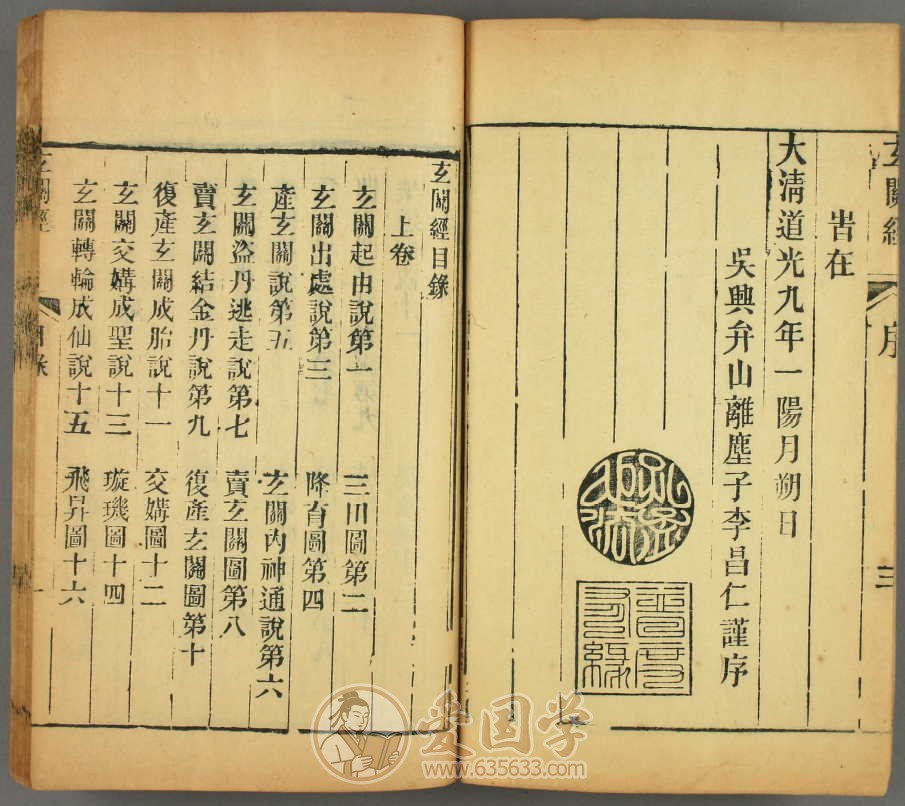 玄關經
序
三
旹在
大清道光九年一陽月朔日
吳興弁山離塵子李昌仁謹序
玄關經目錄
上卷
玄關起由說第一　三川圖第二
玄關出處說第三　降育圖第四
產玄關說第五　玄關內神通說第六
玄關盜丹逃走說第七　賣玄關圖第八
賣玄關結金丹說第九　復產玄關圖第十
復產玄關成胎說十一　交媾圖十二
玄關交媾成聖說十三　璇璣圖十四
玄關轉輪成仙說十五　飛昇圖十六
玄關經
目錄
一
爱国学
www.635633.com